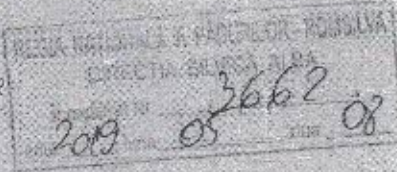 REGIA NAȚIONALĂ A PĂDURILOR - ROMSILVA
DIRECȚIA SILVICĂ ALBA
3662
2019 05 08